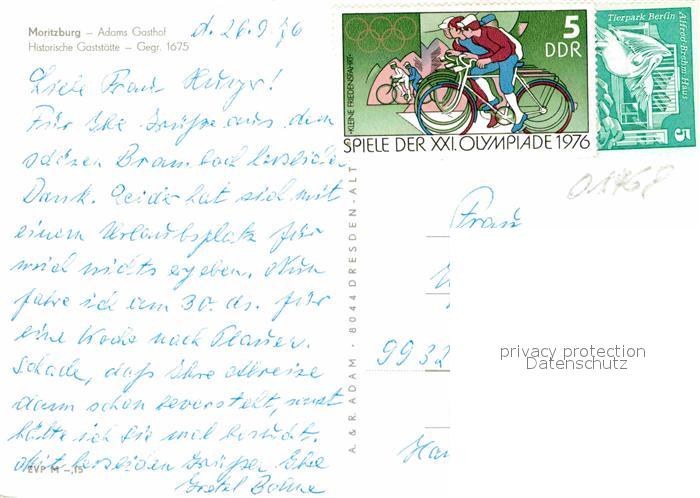 Moritzburg – Adams Gasthof
Historische Gaststätte – Gegr. 1675
d. 26.9.76
Liebe Frau
Für Ihre Grüße aus dem
schönen Brambach herzlichen
Dank. Leider hat sich mit
einem Urlaubsplatz für
mich nichts ergeben. Nun
fahre ich am 30. ds. für
eine Woche nach Plauen.
Schade, daß Ihre Abreise
dann schon bevorsteht, sonst
hätte ich Sie mal besucht.
Mit herzlichen Grüßen Ihre
Gretel
EVP M –,15
A. & R. ADAM · 8044 DRESDEN-ALT
»KLEINE FRIEDENSFAHRT«
5
DDR
SPIELE DER XXI. OLYMPIADE 1976
Tierpark Berlin
Alfred-Brehm-Haus
5
01768
Frau
9932
privacy protection
Datenschutz